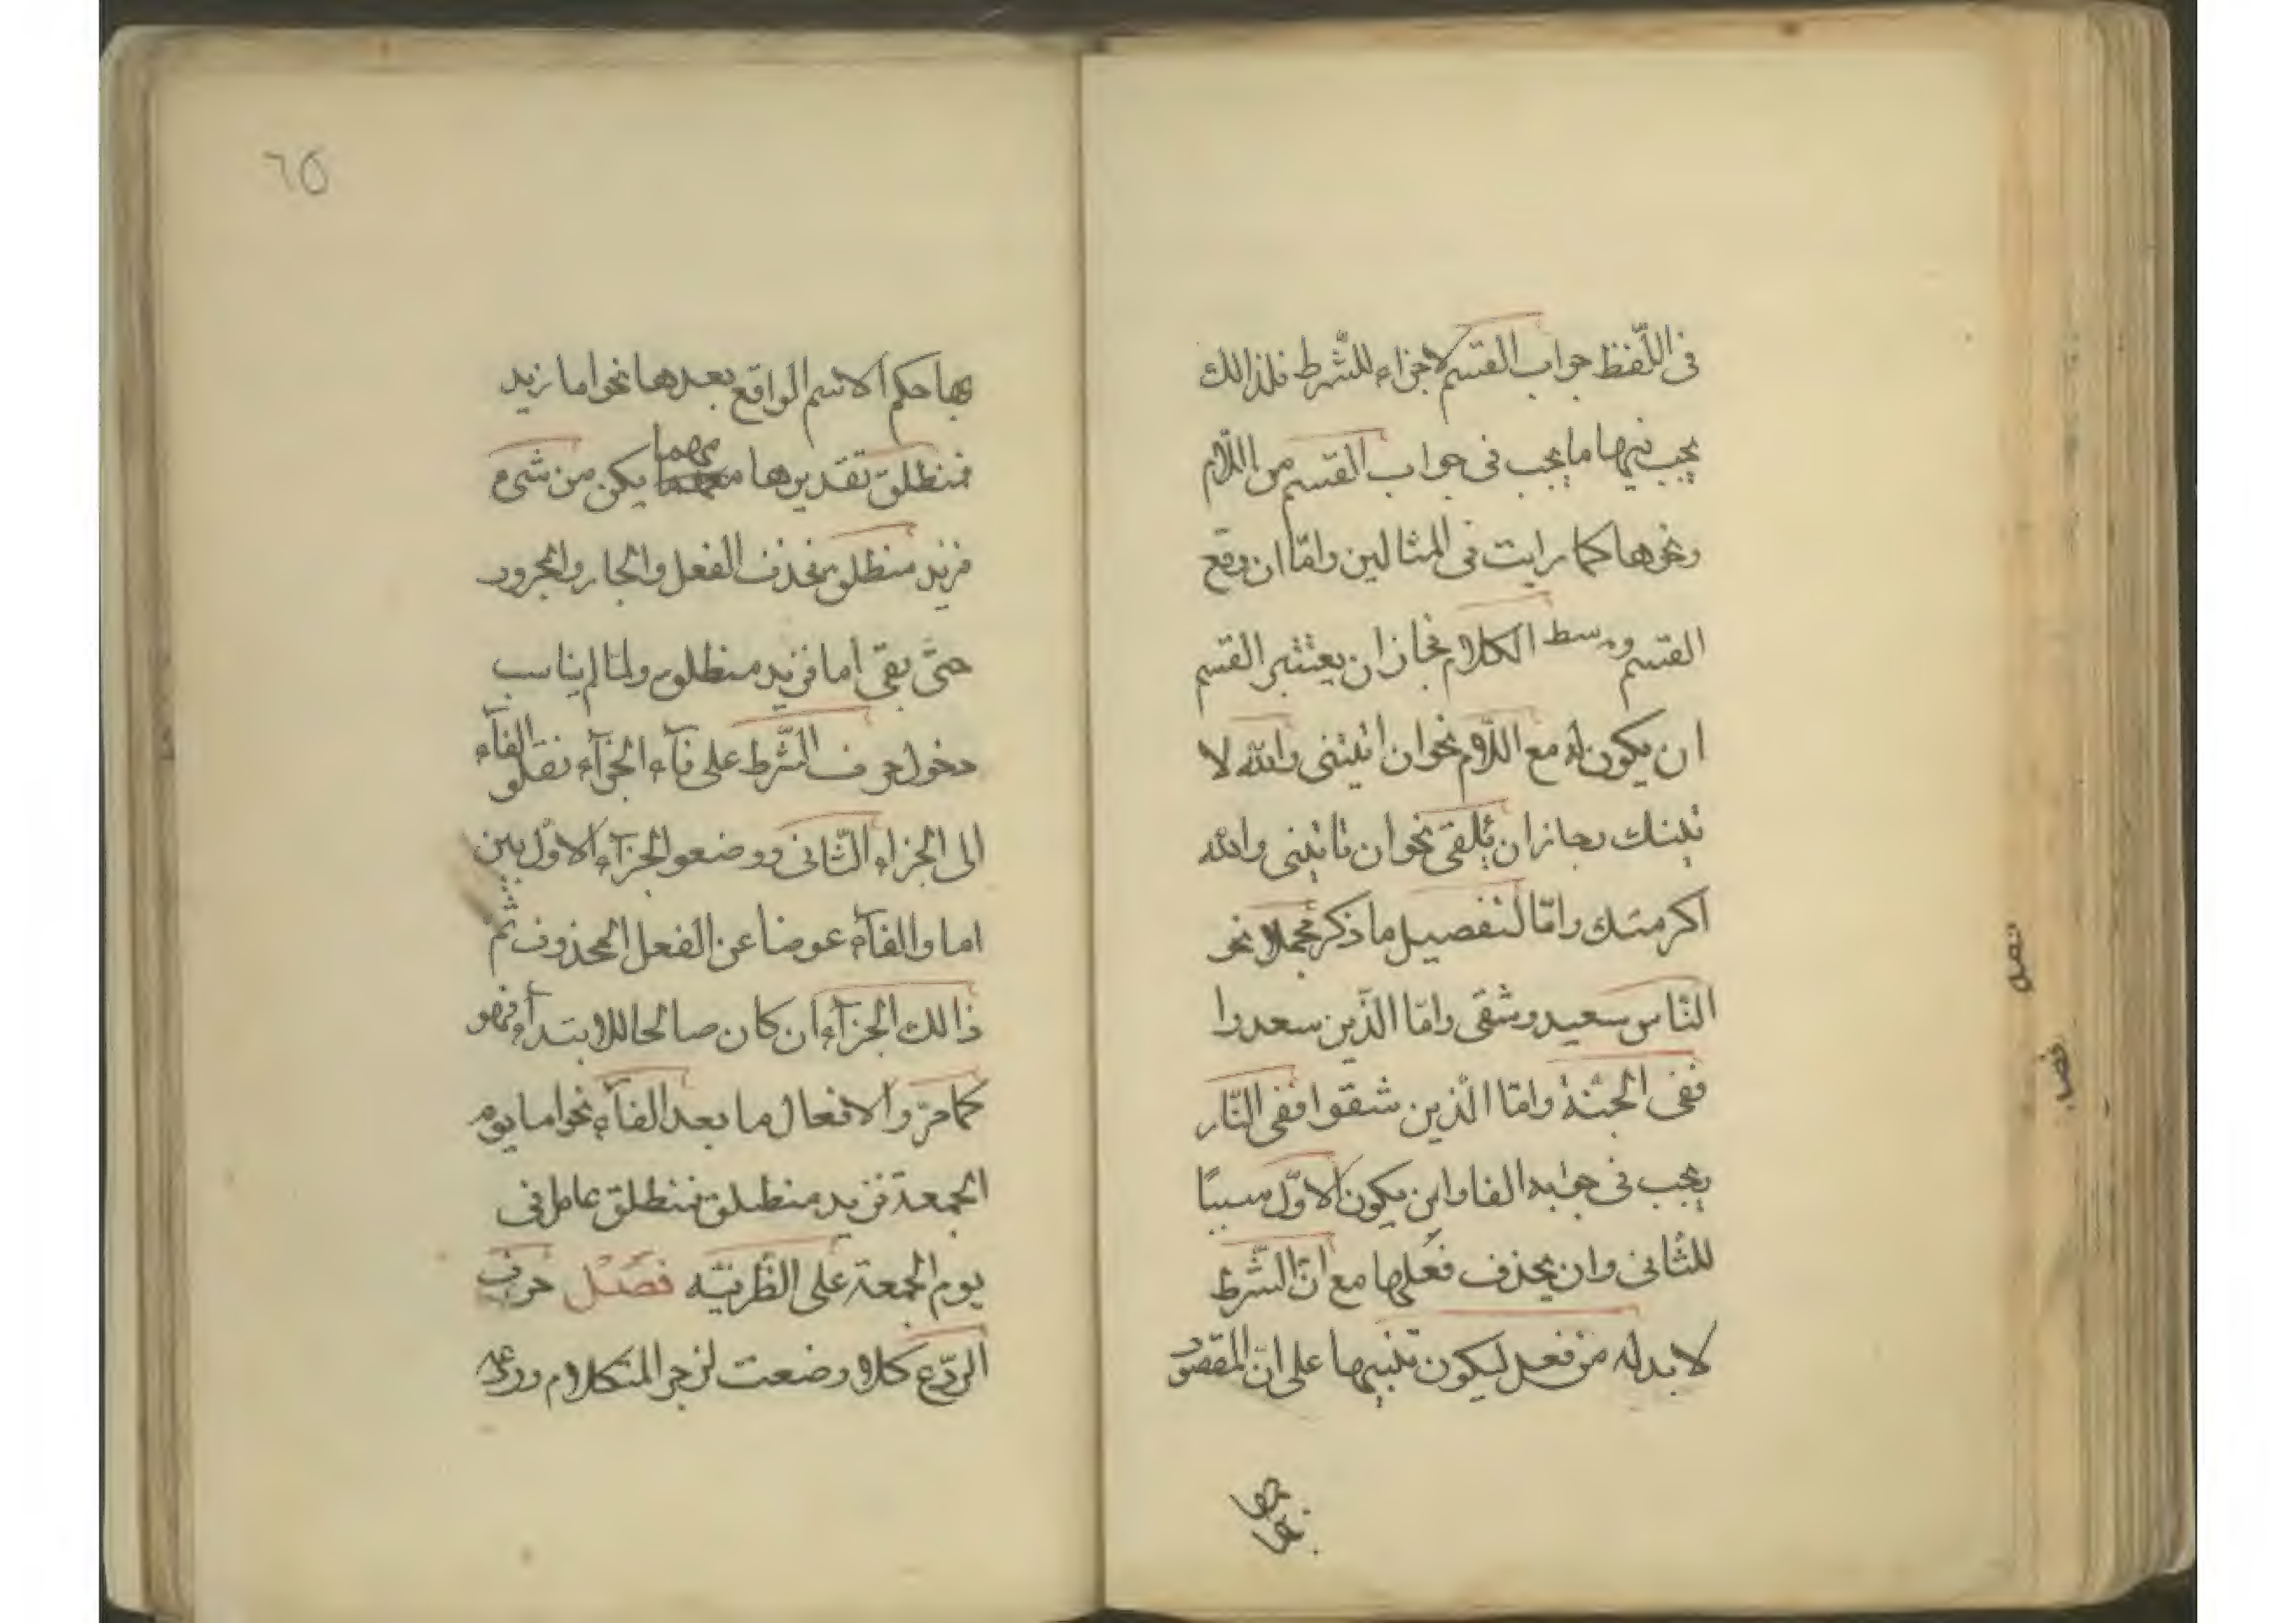 فى اللّفظ جواب القسم لا جزاء للشّرط فلذالك
يجب فيها ما يجب فى جواب القسم من اللّام
ونحوها كما رايت فى المثالين وامّا ان وقع
القسم وسط الكلام نجاز ان يعتبر القسم
ان يكون له مع اللّام نحو ان اتيتنى والله لا
تيتك وجاز ان يلقى نحو ان تاتينى والله
اكرمتك وامّا لتفصيل ما ذكر مجملا نحو
النّاس سعيد وشقى وامّا الّذين سعدوا
ففى الجنّة وامّا الّذين شقوا ففى النّار
يجب فى جوابه الفا وان يكون الاوّل سببًا
للثّانى وان يحذف فعلها مع انّ الشّرط
لا بد له من فعل ليكون تنبيها على انّ المقصود
بها
٦٥
بها حكم الاسم الواقع بعدها نحو اما زيد
فمنطلق تقديرها مهما يكن من شىء
فزيد منطلق فحذف الفعل والجار والمجرور
حتّى بقى اما فزيد منطلق ولمّا لم يناسب
دخول حرف الشّرط على فآء الجزآء نقلو الفآء
الى الجزاء الثّانى ووضعو الجزآء الاوّل بين
اما والفآء عوضا عن الفعل المحذوف ثمّ
ذالك الجزآء ان كان صالحا للابتدآء فهو
كما مرّ والا فعال ما بعد الفآء نحو اما يوم
الجمعة فزيد منطلق فمنطلق عامل فى
يوم الجمعة على الظّرفيّه فصل حرف
الرّدع كلا وضعت لزجر المتكلام وردعه